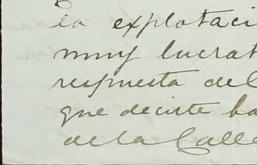 la explotaci
muy lucrat
respuesta del
que decirte ha
de la Calle